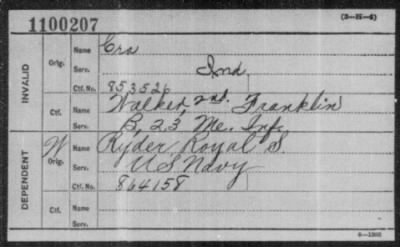 1100207
(3-H-4)
INVALID
Orig.
Name
Serv. Ind.
Ctf. No. 853526
Ctf.
Name Walker, 2nd. Franklin
Serv. B, 23 Me. Inf.
DEPENDENT
W
Orig.
Name Ryder Royal S.
Serv. US Navy
Ctf. No. 864158
Ctf.
Name
Serv.